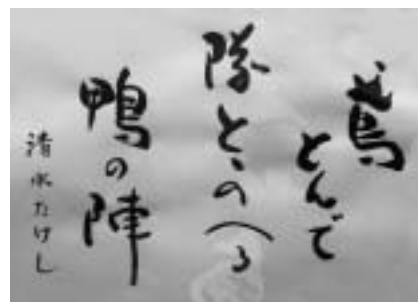 鳶とんで
隊とゝのへる
鴨の陣
清水たけし